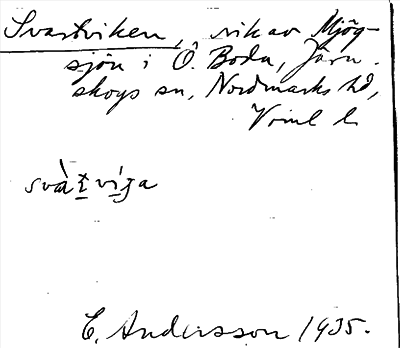 Svartviken, vik av Mjög-
sjön i Ö. Boda, Järn-
skogs sn, Nordmarks hd,
Vrml l.
svàt̲ví̲ga
E. Andersson 1935.